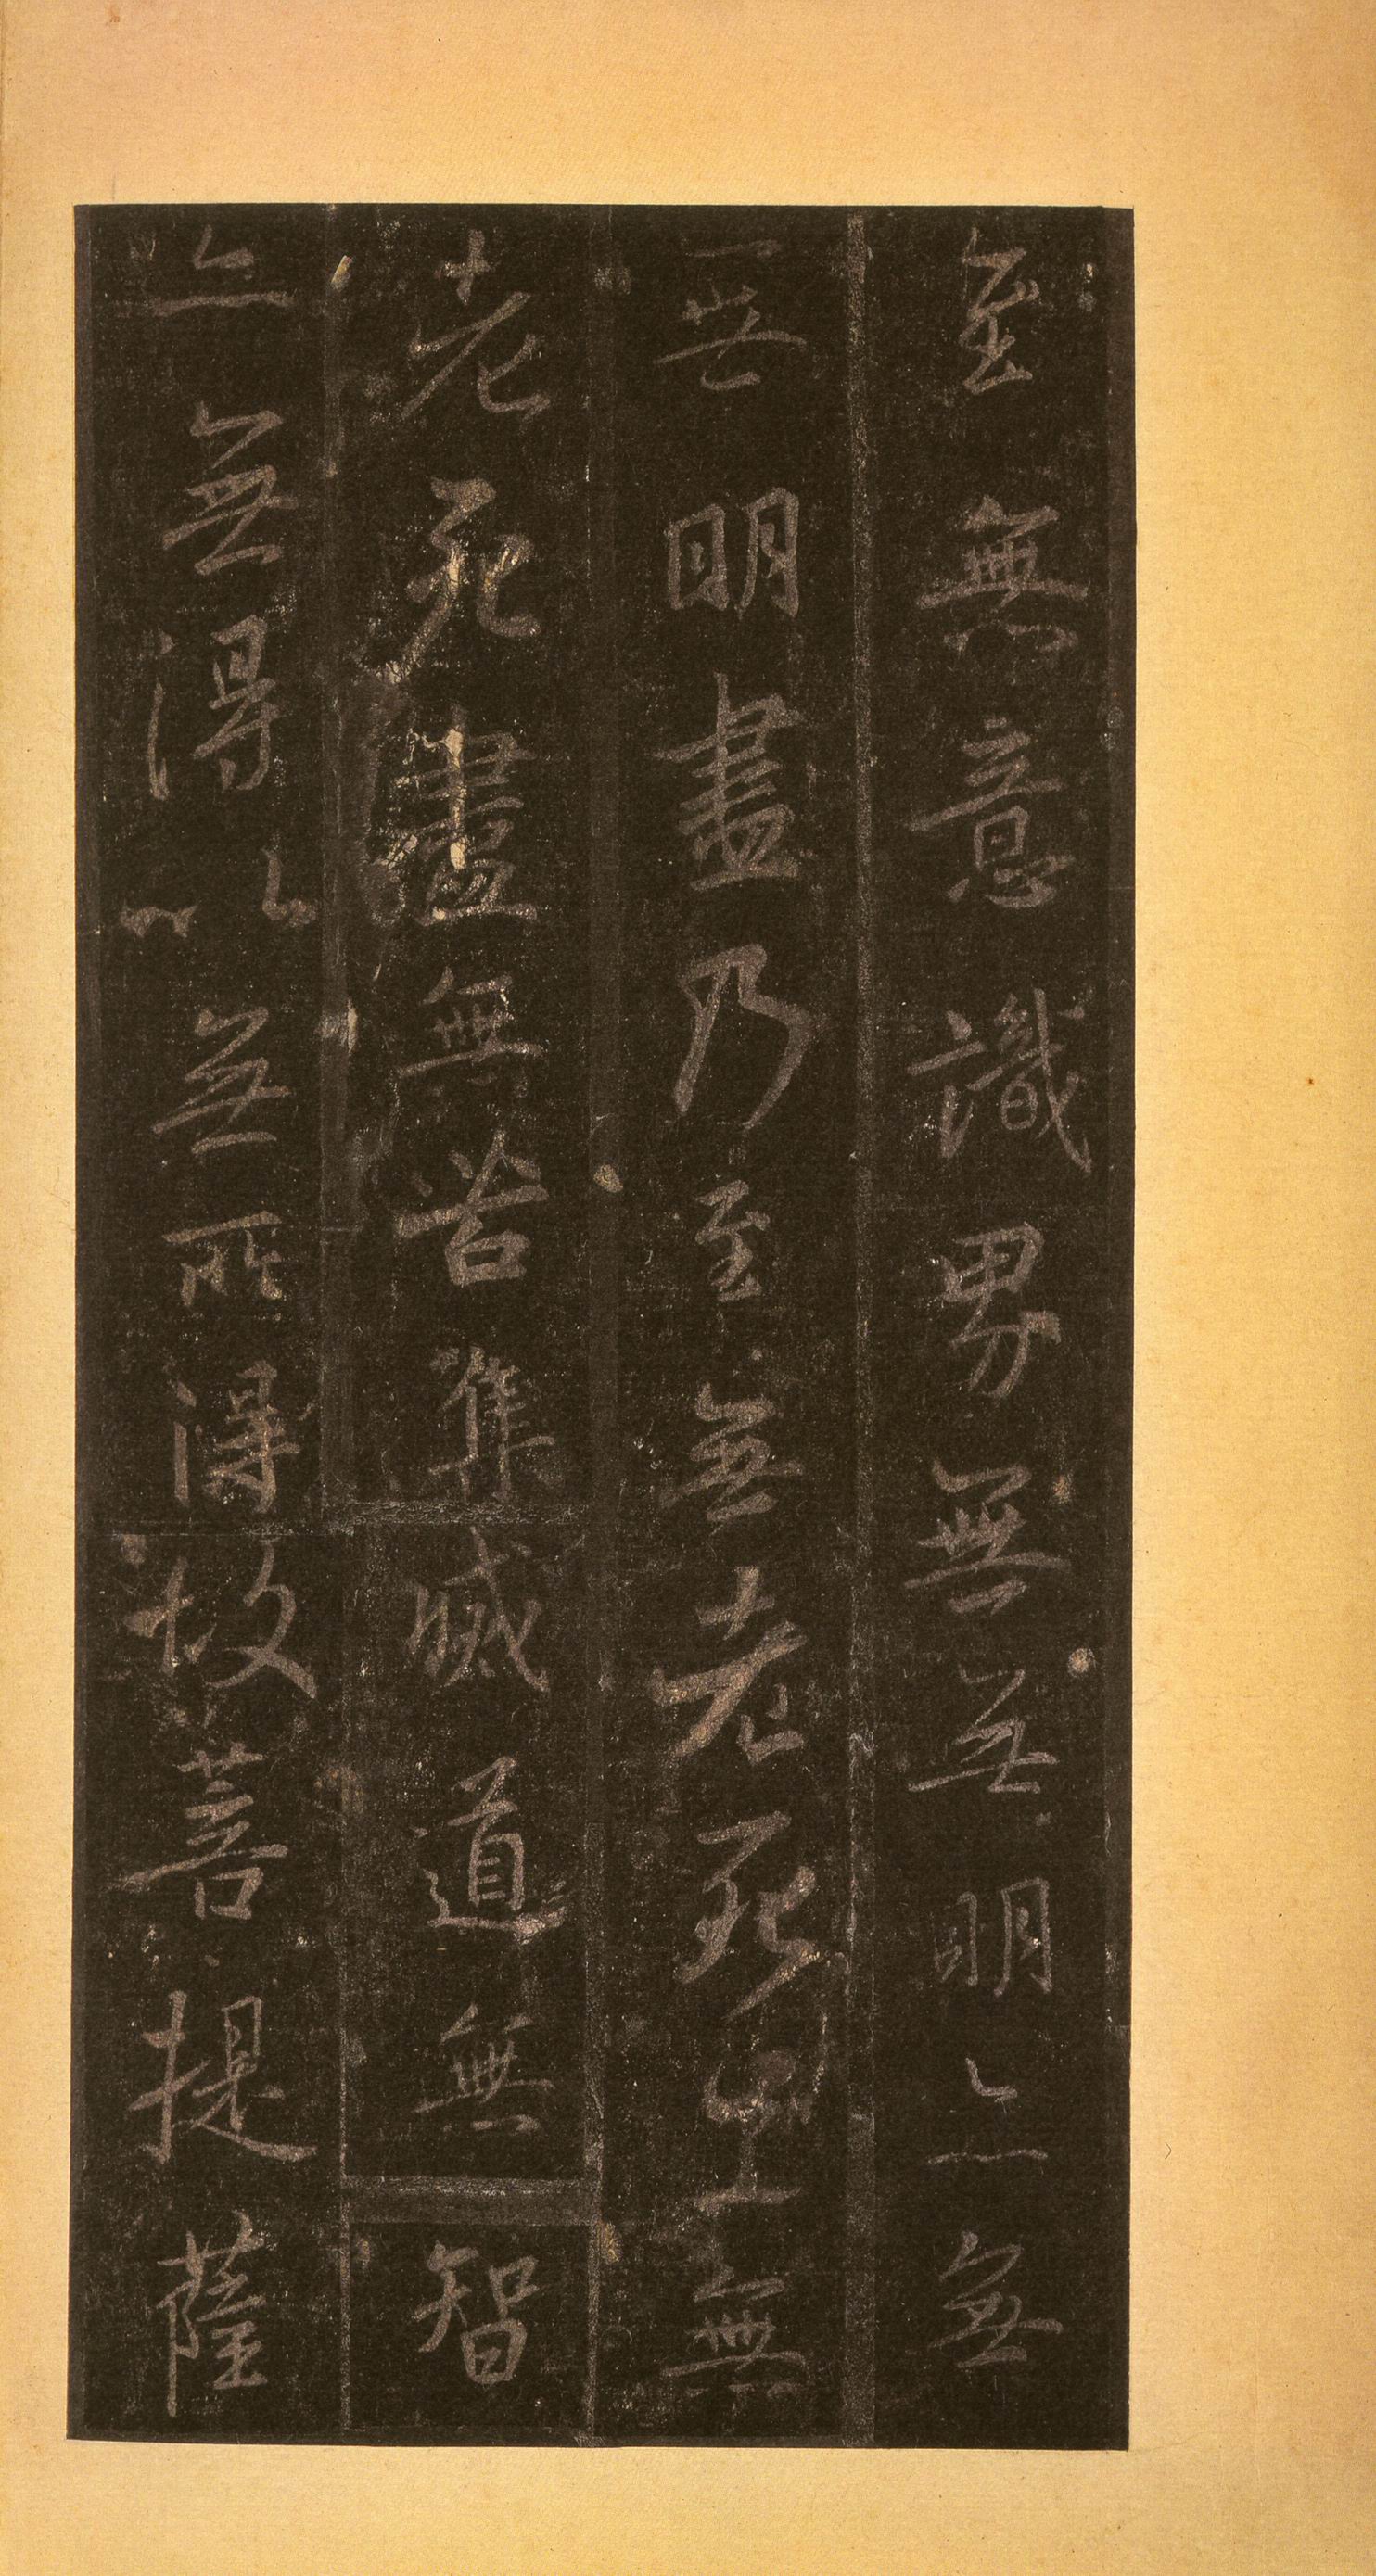 至無意識界無無明亦無
無明盡乃至無老死亦無
老死盡無苦集滅道無智
亦無得以無所得故菩提薩